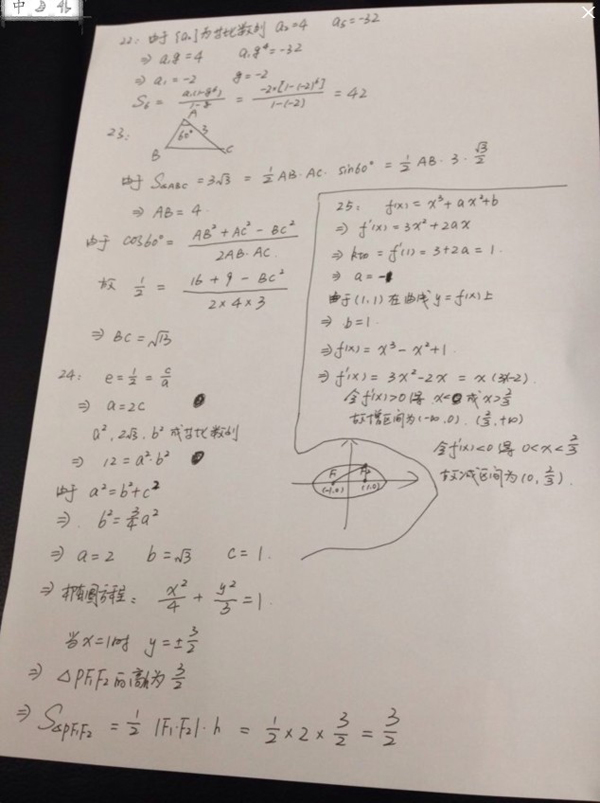 22: 由于{aₙ}为等比数列 a₂=4 a₅=-32
⇒ a₁q=4 a₁q⁴=-32
⇒ a₁=-2 q=-2
S₆ = a₁(1-q⁶)/1-q = -2×[1-(-2)⁶]/1-(-2) = 42
23:
A
60° 3
B C
由于 S△ABC = 3√3 = 1/2 AB·AC·sin60° = 1/2 AB·3·√3/2
⇒ AB=4.
由于 cos60° = AB²+AC²-BC²/2AB·AC.
故 1/2 = 16+9-BC²/2×4×3
⇒ BC=√13
24: e=1/2=c/a
⇒ a=2c
a², 2√3, b² 成等比数列
⇒ 12=a²·b²
由于 a²=b²+c²
⇒. b²=3/4a²
⇒ a=2 b=√3 c=1.
⇒ 椭圆方程: x²/4 + y²/3 = 1.
当x=1时 y=±3/2
⇒ △PF₁F₂的高为3/2
⇒ S△PF₁F₂ = 1/2 |F₁·F₂|·h = 1/2×2×3/2 = 3/2
25: f(x)=x³+ax²+b
⇒ f'(x)=3x²+2ax
⇒ = f'(1)=3+2a=1.
⇒ a=-1
由于(1,1)在曲线y=f(x)上
⇒ b=1.
⇒f(x)=x³-x²+1.
⇒ f'(x)=3x²-2x=x(3x-2).
令f'(x)>0得 x<0或x>2/3
故增区间为(-∞,0).(2/3,+∞)
令f'(x)<0得 0<x<2/3
故减区间为(0,2/3).
F₁ F₂
(-1,0) (1,0)